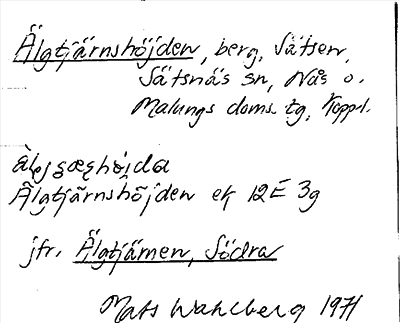 Älgtjärnshöjden, berg, Sätsen,
Särsnäs sn, Nås o.
Malungs doms. tg, Koppl.
Älgtjärnshöjden ek 12E 3g
jfr. Älgtjärnen, Södra
Mats Wahlberg 1971